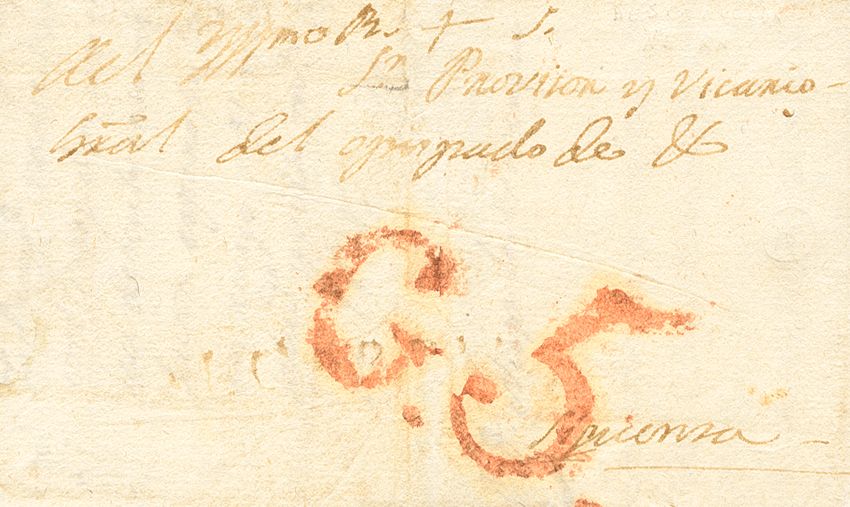 Al Yllmo R. + S.
Sn Provisor y Vicario
Gral del opispado de &
65
Siguenza